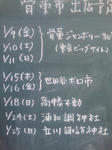 骨董市 出店予定
1/9(金)
1/10(土)
1/11(日)
骨董ジャンボリー
(東京ビッグサイト)
1/15(木)
1/16(金)
世田谷ボロ市
1/18(日) 高幡不動
1/24(土) 浦和
1/25(日) 立川諏訪神社